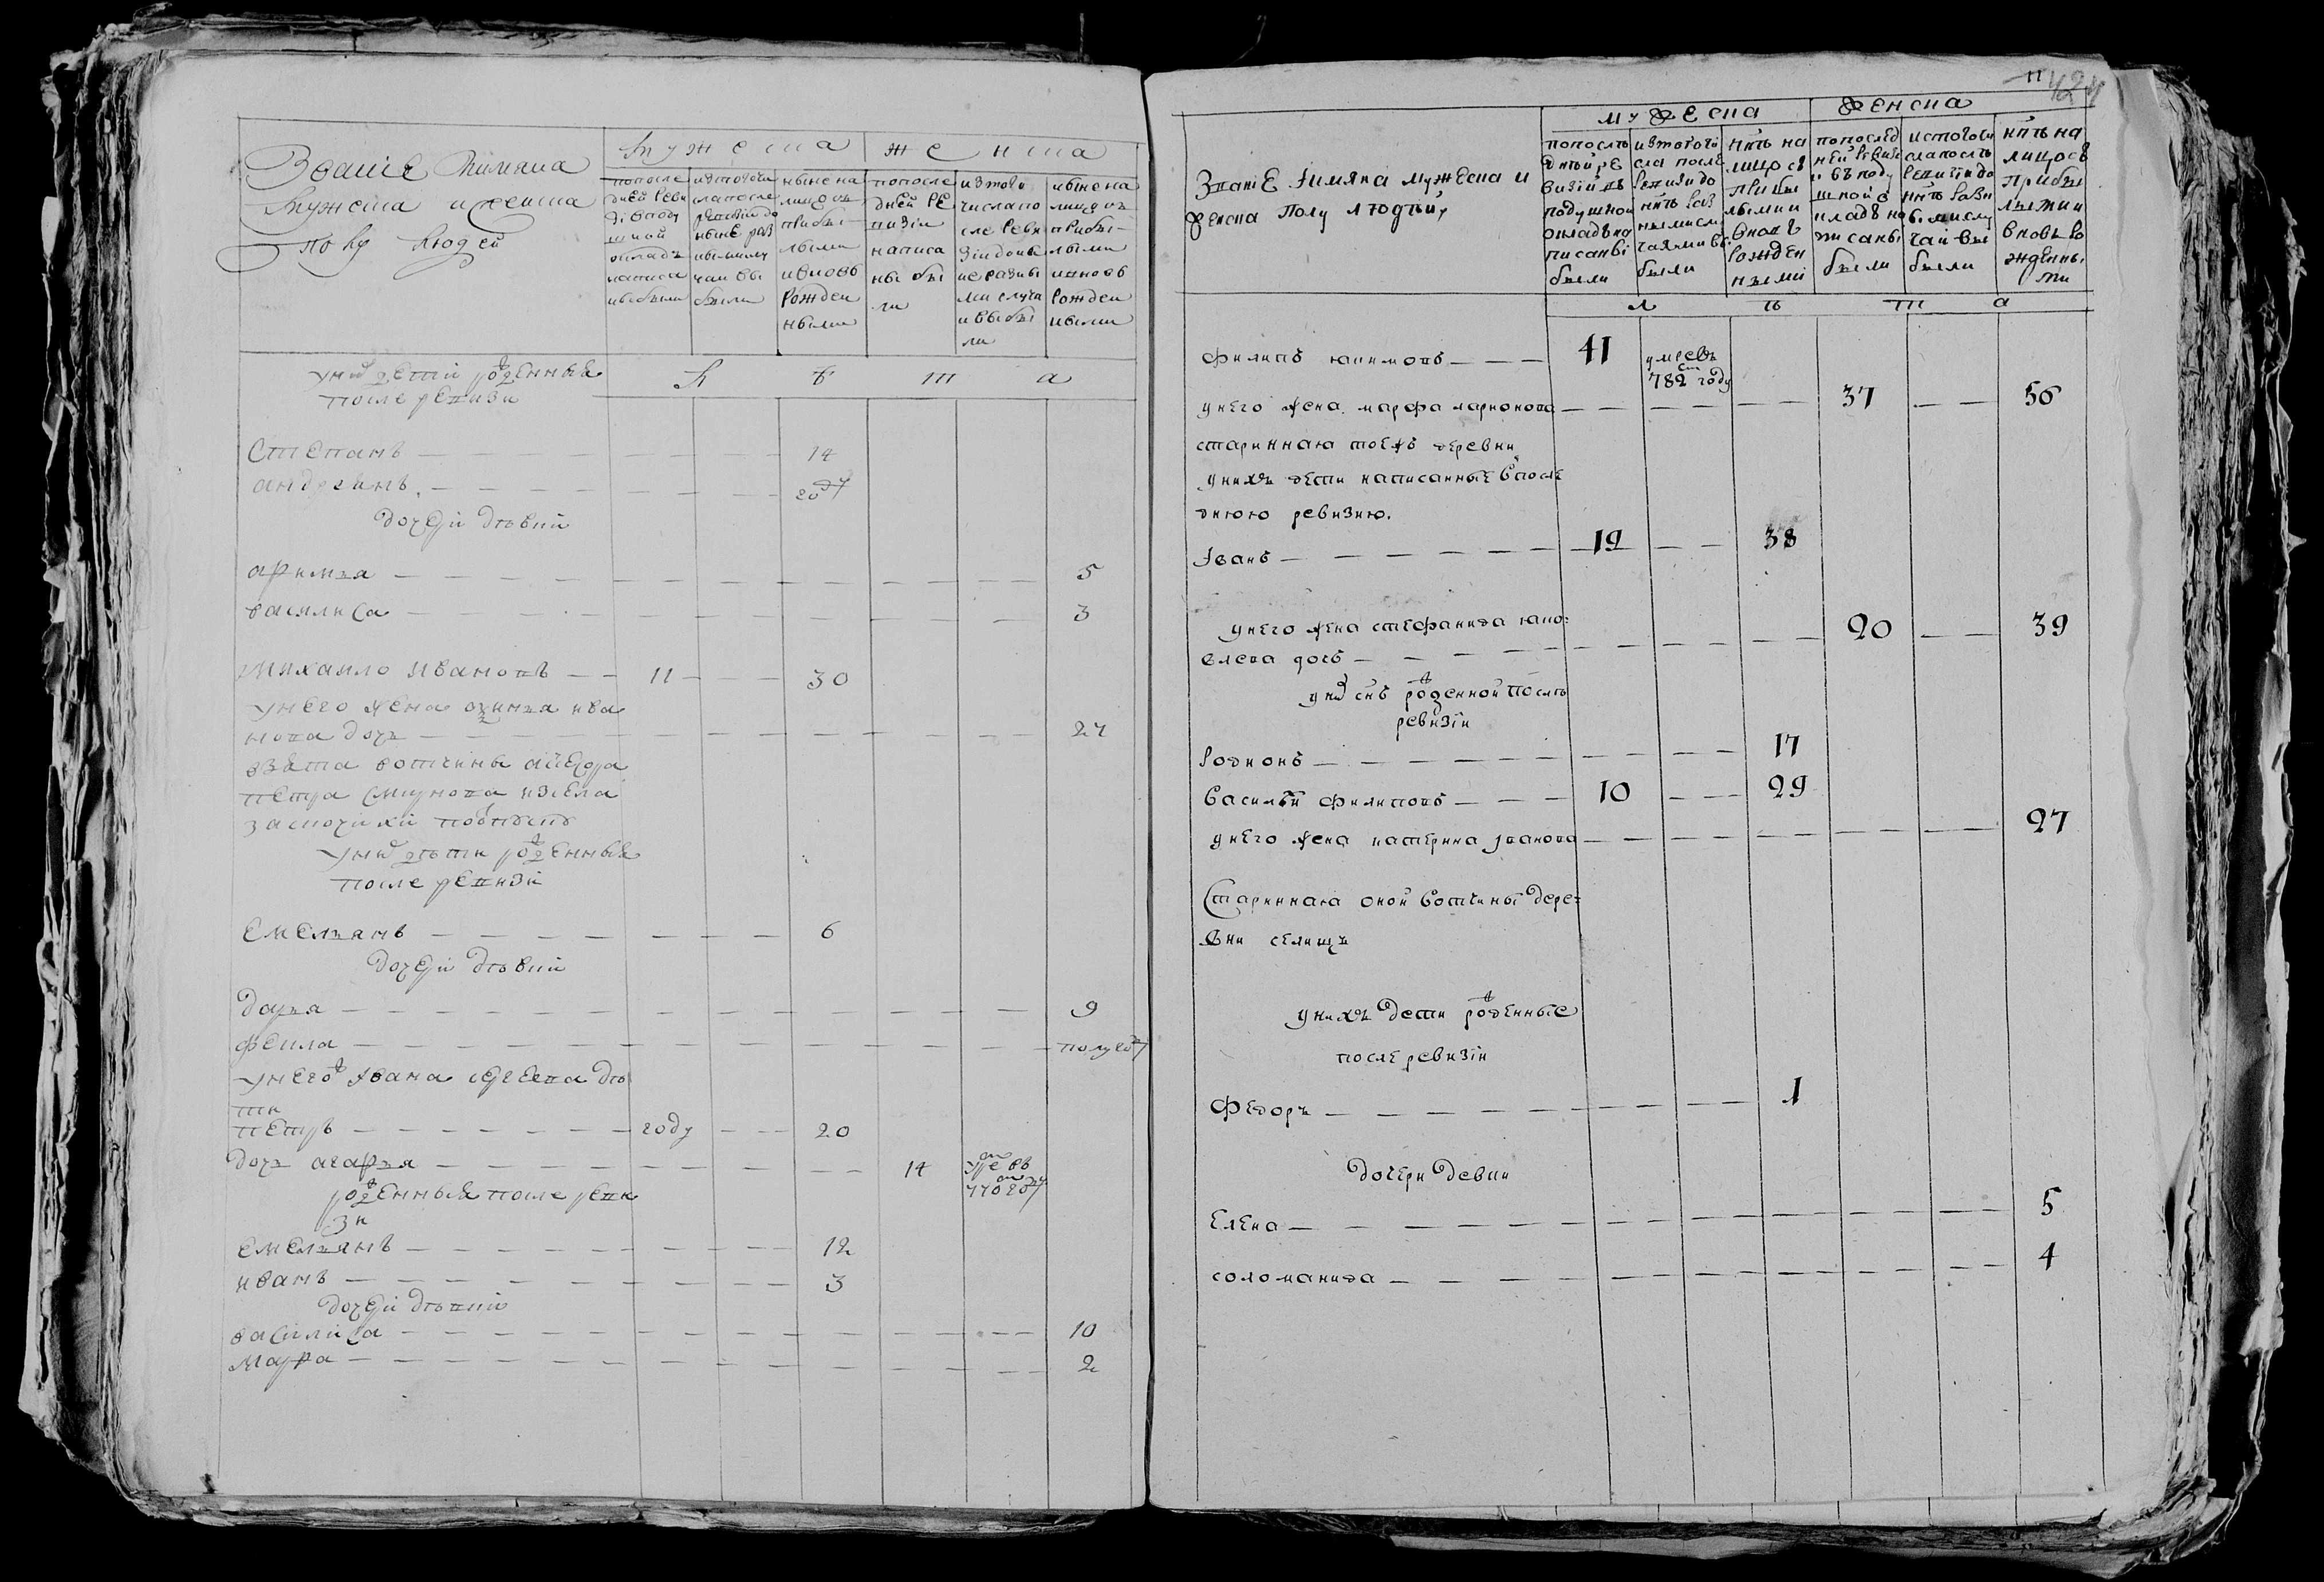 Звание имяна
мужеска и женска
полу людей
мужеска
женска
попосле
дней реви
зіи вподу
шной
окладъ
написа
ны были
ис того чи
сла после
ревизіи до
ныне раз
ными слу
чаи вы
были
ныне на
лицо съ
прибы
лыми
и вновь
рожден
ными
попосле
дней ре
визіи
написа
ны бы
ли
из того
числа по
сле реви
зіи до ны
не разны
ми случа
и выбы
ли
ныне на
лицо съ
прибы
лыми
и вновь
рожден
ными
лѣта
у них дети рожденныя
после ревизи
Степанъ 14
андреянъ году
дочери дѣвки
афимья 5
василиса 3
михайло ивановъ 11 30
у него жена аѯинья ива
нова дочь 27
взята вотчины
петра изсела
у них дѣти рожденныя
после ревизи
емельянъ 6
дочери дѣвки
дарья 9
фекла полугоду
у негож ивана сергеева дѣ
ти
петръ году 20
дочь агафья 14 умре въ
770 году
рожденныя после реви
зи
емельянъ 12
иванъ 3
дочери дѣвки
василиса 10
мавра 2
11
424
Званіе имяна мужеска и
женска полу людѣй
мужеска
женска
попослѣ
днѣй ре
визіи въ
подушной
окладъ на
писаны
были
ис того чи
сла после
ревизи до
нѣ раз
ными слу
чаями вы
были
нѣ на
лицо съ
прибы
лыми и
вновь
рожден
ными
попослед
ней ревизі
и въ поду
шной о
кладъ на
писаны
были
ис того чи
сла послѣ
ревизіи до
нѣ разн
ыми слу
чаи вы
были
нѣ на
лицо съ
прибы
лыми и
вновь ро
жденны
ми
лѣта
филипъ екимовъ 41 умре въ
782 году
у него жена марфа ларионова 37 56
стариннаю тоежъ деревни
у нихъ дети написанные в после
днюю ревизию
Иванъ 19 38
у него жена стефанида яко
влева дочь 20 39
у них снъ рожденной послѣ
ревизіи
Родионъ 17
Василей филиповъ 10 29
у него жена катерина иванова 27
Стариннаю оной вотчины дере
вни селищъ
у нихъ дети рожденные
после ревизіи
Федоръ 1
дочери девки
Елена 5
соломанида 4